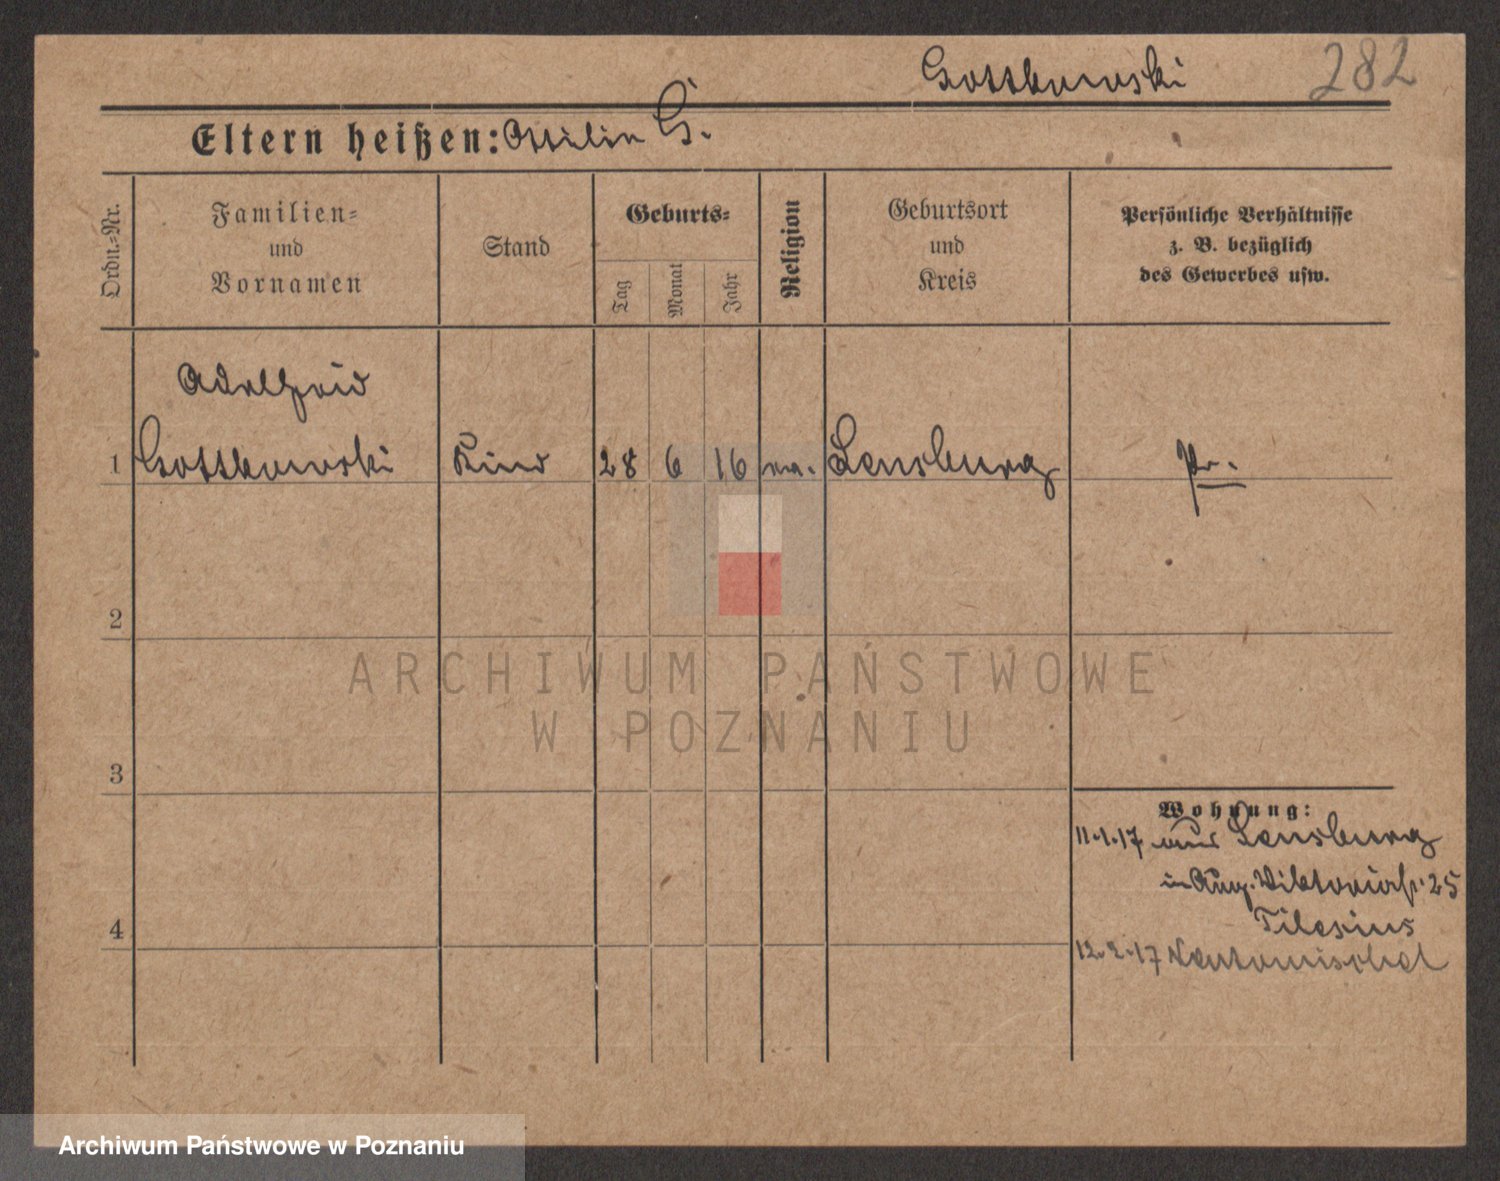 Gottkowski 282
Eltern heißen: Ottilie G.
Ordn.-Nr.
Familien-
und
Vornamen
Stand
Geburts-
Tag
Monat
Jahr
Religion
Geburtsort
und
Kreis
Persönliche Verhältnisse
z. B. bezüglich
des Gewerbes usw.
Adelheid
1 Gottkowski Kind 28 6 16 Sensburg Pr.
2
ARCHIWUM PAŃSTWOWE
W POZNANIU
3
Wohnung:
11.1.17 aus Sensburg
in Aug. Viktoriastr. 25
Tilesius
4
12.2.17
Archiwum Państwowe w Poznaniu